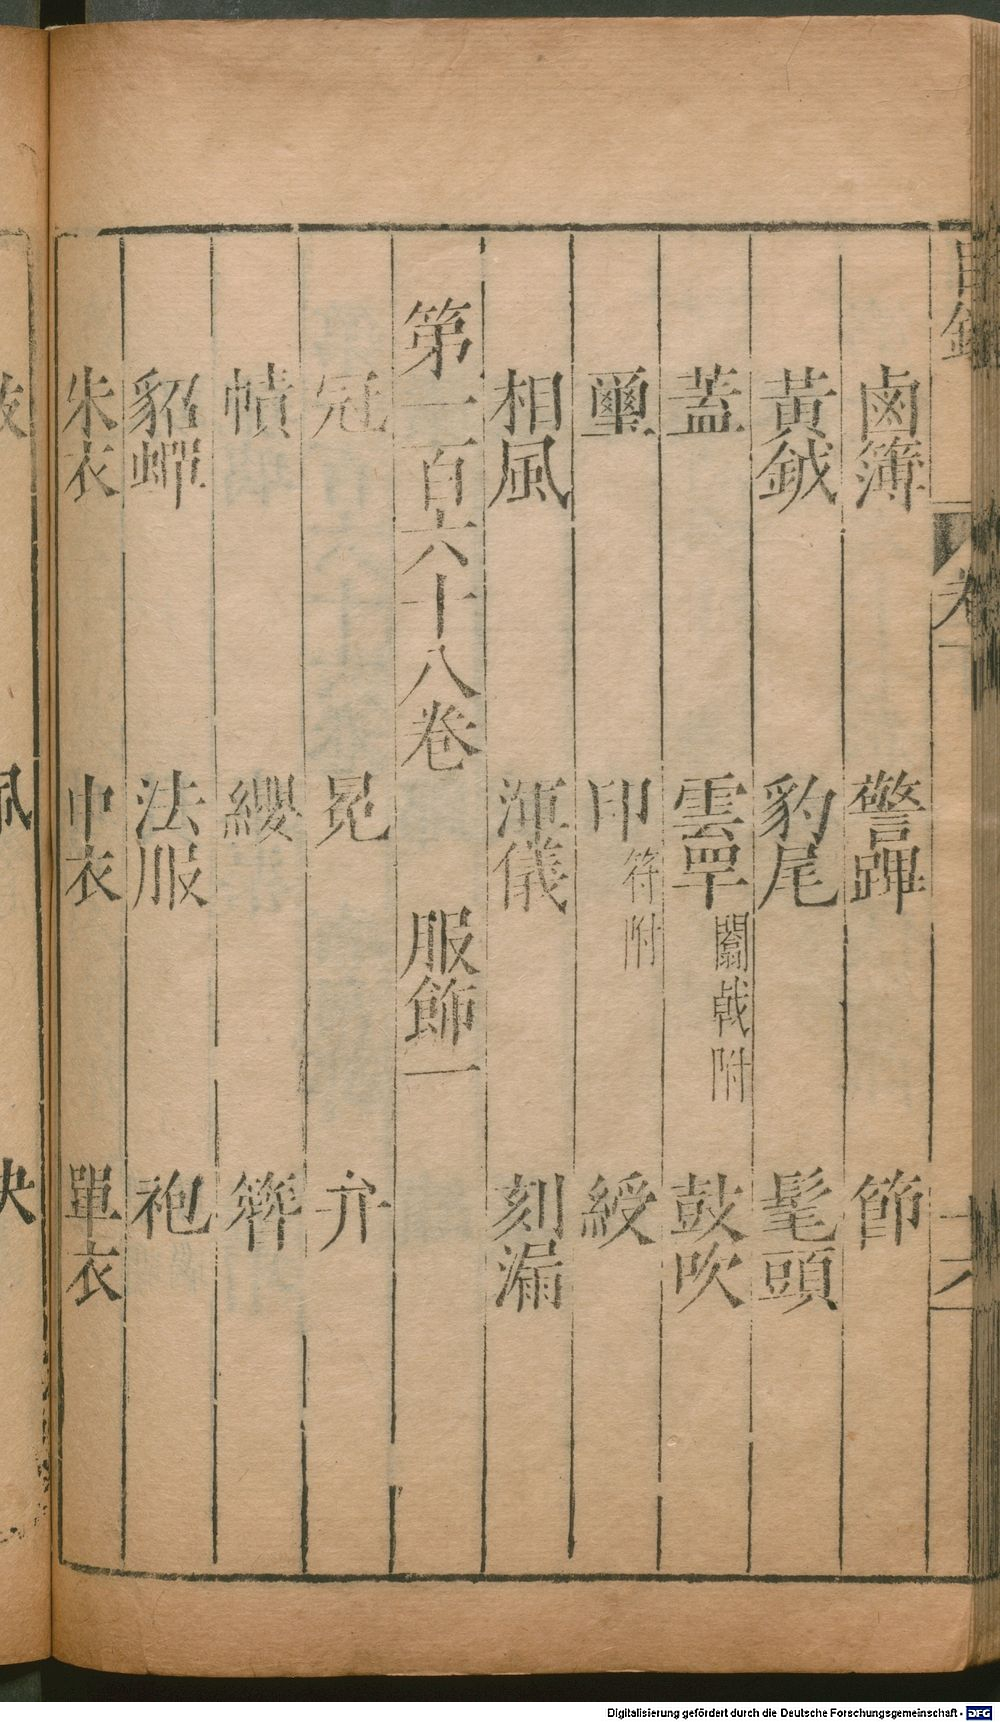 鹵簿 警蹕 節
黃鉞 豹尾 髦頭
蓋 雲罕 闟戟附 鼓吹
璽 印 符附 綬
相風 渾儀 刻漏
第一百六十八卷 服飾一
冠 冕 弁
幘 纓 簪
貂蟬 法服 袍
朱衣 中衣 單衣
Digitalisierung gefördert durch die Deutsche Forschungsgemeinschaft - DFG